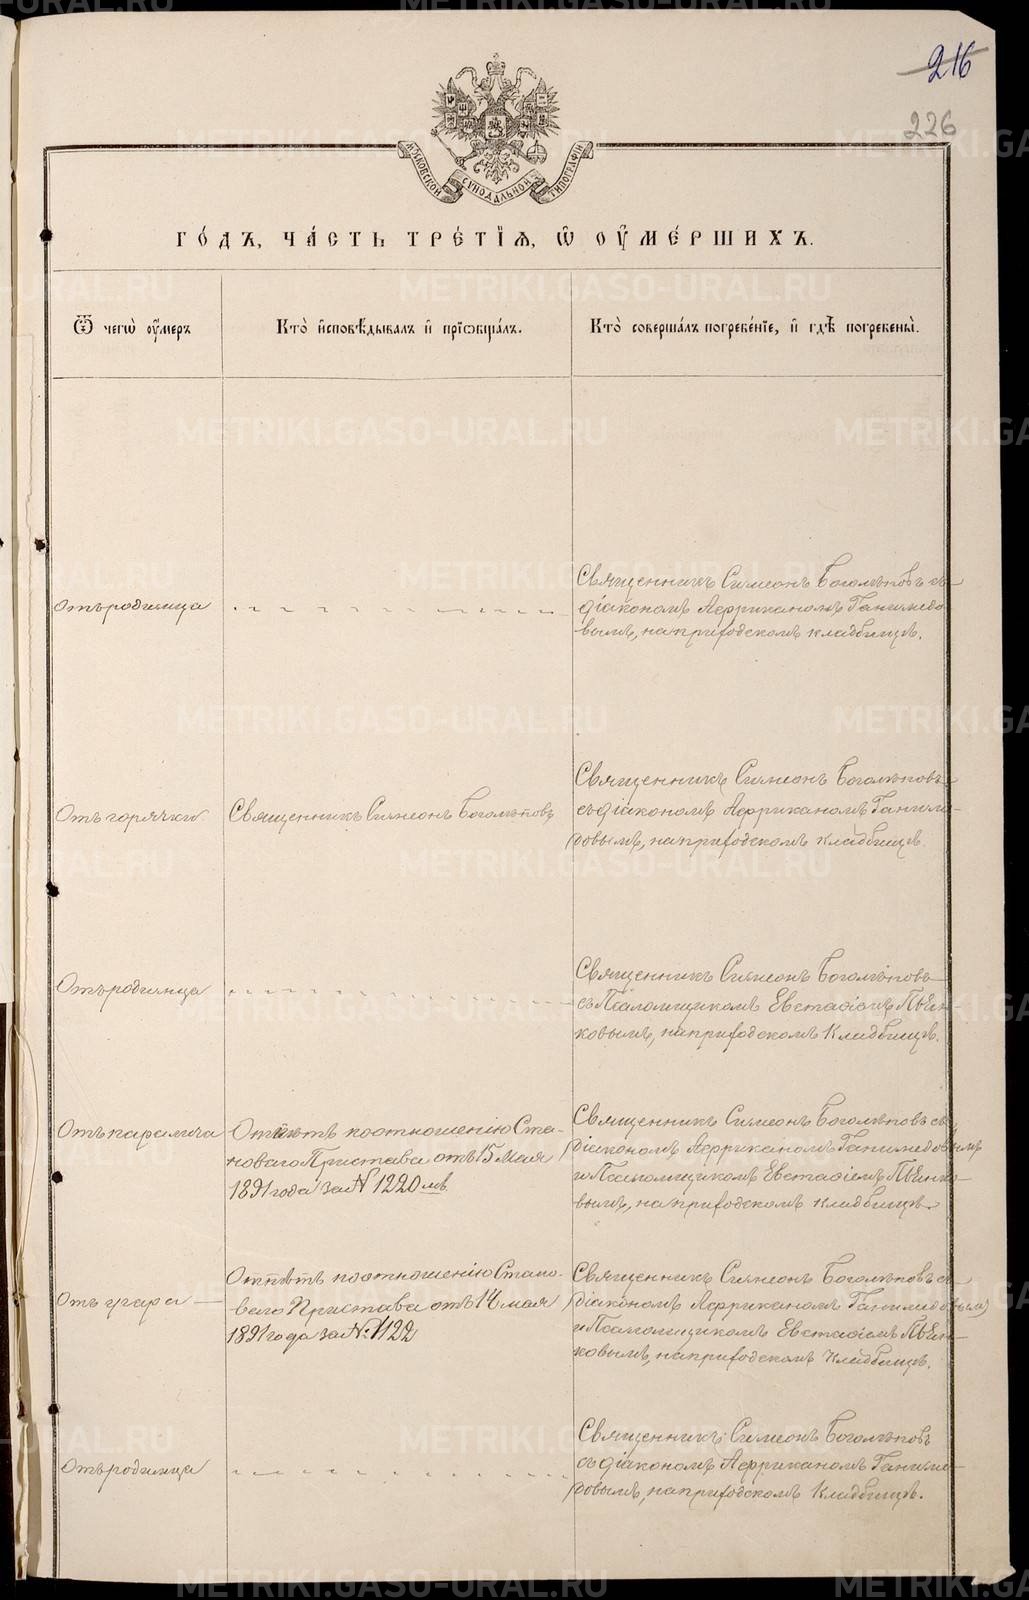 216
226
МОСКОВСКОЙ СѴНОДАЛЬНОЙ ТИПОГРАФІИ
ГО́ДЪ, ЧА́СТЬ ТРЕ́ТІѦ, Ѡ҆ ОУ҆МЕ́РШИХЪ.
Ѿ чегѡ̀ оу҆́меръ
Кто̀ и҆сповѣ́дывалъ и҆ прїѡбща́лъ.
Кто̀ соверша́лъ погребе́нїе, и҆ гдѣ̀ погребены̀.
Отъ родимца
Священникъ Симеонъ Боголѣповъ съ
діакономъ Африканомъ Ганимедо-
вымъ, на приходскомъ кладбищѣ.
Отъ горячки
Священникъ Симеонъ Боголѣповъ
Священникъ Симеонъ Боголѣповъ
съ діакономъ Африканомъ Ганиме-
довымъ, на приходскомъ кладбищѣ.
Отъ родимца
Священникъ Симеонъ Боголѣповъ
съ Псаломщикомъ Евстафіемъ Пѣин-
ковымъ, на приходскомъ Кладбищѣ.
Отъ паралича
Отпѣтъ по отношенію Ста-
новаго Пристава отъ 15 мая
1891 года за № 1220 мъ.
Священникъ Симеонъ Боголѣповъ съ
діакономъ Африканомъ Ганимедовымъ
и Псаломщикомъ Евстафіемъ Пѣинко-
вымъ, на приходскомъ кладбищѣ.
Отъ угара
Отпѣтъ по отношенію Стано-
ваго Пристава отъ 14 мая
1891 года за № 1122
Священникъ Симеонъ Боголѣповъ съ
діакономъ Африканомъ Ганимедовымъ
и Псаломщикомъ Евстафіемъ Пѣин-
ковымъ, на приходскомъ кладбищѣ.
Отъ родимца
Священникъ Симеонъ Боголѣповъ
съ діакономъ Африканомъ Ганиме-
довымъ, на приходскомъ Кладбищѣ.
METRIKI.GASO-URAL.RU